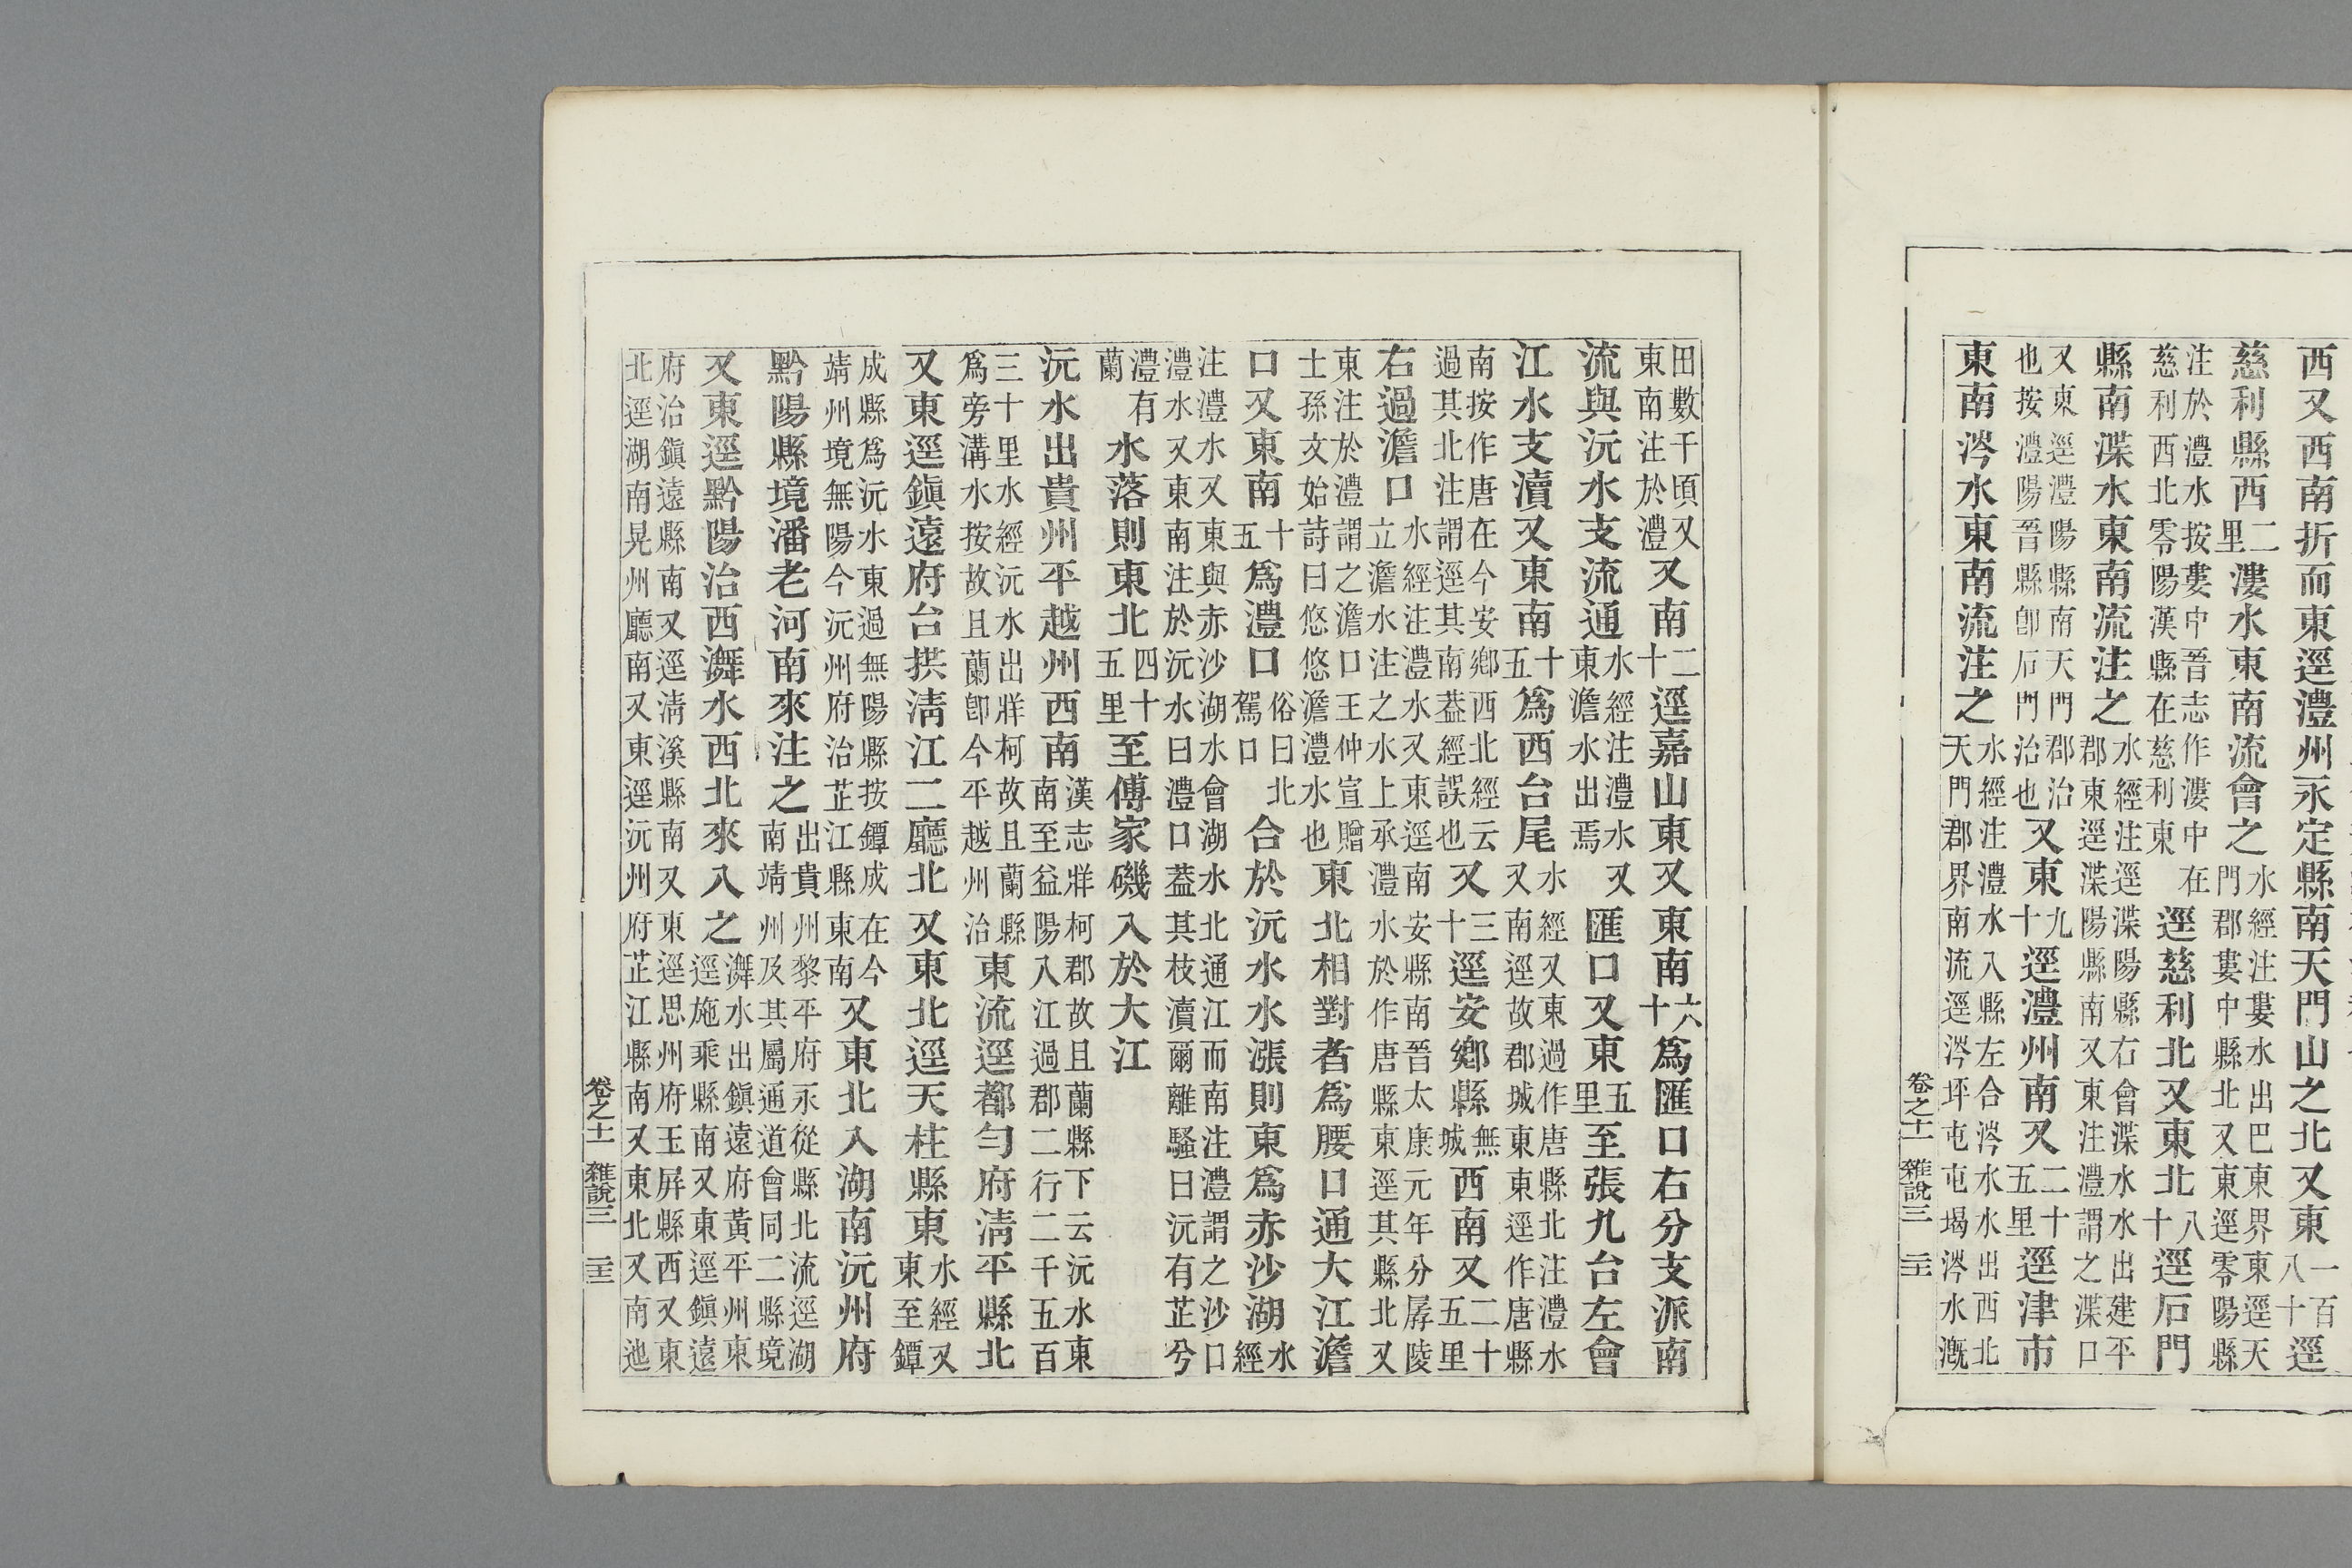 西又西南折而東逕澧州永定縣南天門山之北又東一百八十逕
慈利縣西二里漊水東南流會之水經注婁水出巴東界東逕天門郡婁中縣北又東逕零陽縣
注於澧水按婁中晉志作漊中在慈利西北零陽漢縣在慈利東逕慈利北又東北八十逕石門
縣南渫水東南流注之水經注逕渫陽縣右會渫水水出建平郡東逕渫陽縣南又東注澧謂之渫口
又東逕澧陽縣南天門郡治也按澧陽晉縣卽石門治也又東九十逕澧州南又二十五里逕津市
東南涔水東南流注之水經注澧水入縣左合涔水水出西北天門郡界南流逕涔坪屯屯堨涔水溉
卷之十一 雜說三 二十二
田數千頃又東南注於澧又南二十逕嘉山東又東南六十爲匯口右分支派南
流與沅水支流通水經注澧水又東澹水出焉匯口又東五里至張九台左會
江水支瀆又東南十五爲西台尾水經又東過作唐縣北注澧水又南逕故郡城東東逕作唐縣
南按作唐在今安鄉西北經云過其北注謂逕其南葢經誤也又三十逕安鄉縣無城西南又二十五里
右過澹口水經注澧水又東逕南安縣南晉太康元年分孱陵立澹水注之水上承澧水於作唐縣東逕其縣北又
東注於澧謂之澹口王仲宣贈士孫文始詩曰悠悠澹澧水也東北相對者爲腰口通大江澹
口又東南十五爲澧口俗曰北駕口合於沅水水漲則東爲赤沙湖水經
注澧水又東與赤沙湖水會湖水北通江而南注澧謂之沙口澧水又東南注於沅水曰澧口葢其枝瀆爾離騷曰沅有芷兮
澧有蘭水落則東北四十五里至傅家磯入於大江
沅水出貴州平越州西南漢志牂柯郡故且蘭縣下云沅水東南至益陽入江過郡二行二千五百
三十里水經沅水出牂柯故且蘭縣爲旁溝水按故且蘭卽今平越州治東流逕都勻府清平縣北
又東逕鎭遠府台拱清江二廳北又東北逕天柱縣東水經又東至鐔
成縣爲沅水東過無陽縣按鐔成在今靖州境無陽今沅州府治芷江縣東南又東北入湖南沅州府
黔陽縣境潘老河南來注之出貴州黎平府永從縣北流逕湖南靖州及其屬通道會同二縣境
又東逕黔陽治西潕水西北來入之潕水出鎭遠府黃平州東逕施乘縣南又東逕鎭遠
府治鎭遠縣南又逕清溪縣南又東逕思州府玉屏縣西又東北逕湖南晃州廳南又東逕沅州府芷江縣南又東北又南迆
卷之十一 雜說三 二十三